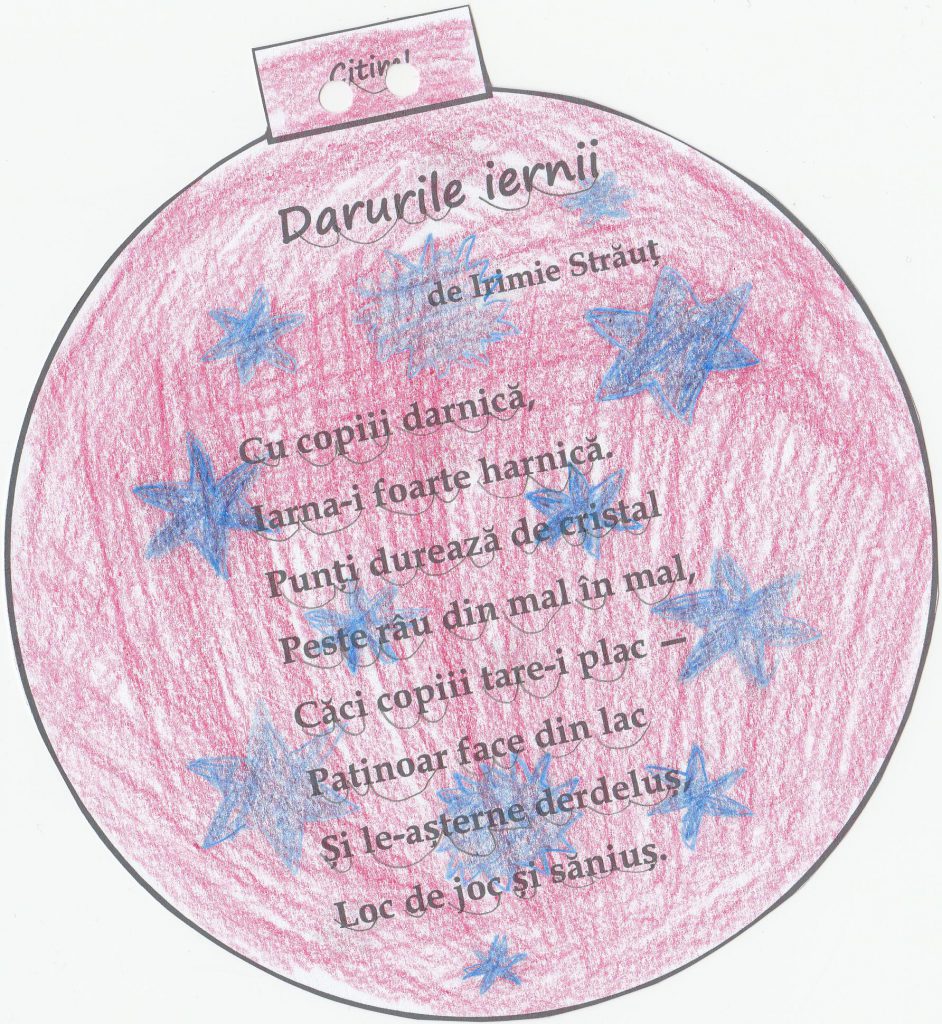 Citim!
Darurile iernii
de Irimie Străuț
Cu copiii darnică,
Iarna-i foarte harnică.
Punți durează de cristal
Peste râu din mal în mal,
Căci copiii tare-i plac —
Patinoar face din lac
Și le-așterne derdeluș,
Loc de joc și săniuș.